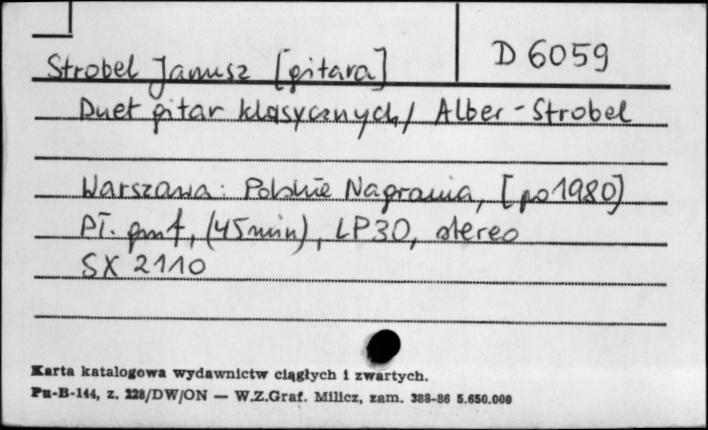 D 6059
Strobel Janusz [gitara]
Duet gitar klasycznych / Alber-Strobel
Warszawa: Polskie Nagrania, [po 1980]
Pł. gmf, (45 min), LP30, stereo
SX 2110
Karta katalogowa wydawnictw ciągłych i zwartych.
Pu-B-144, z. 228/DW/ON — W.Z.Graf. Milicz, zam. 388-86 5.650.000